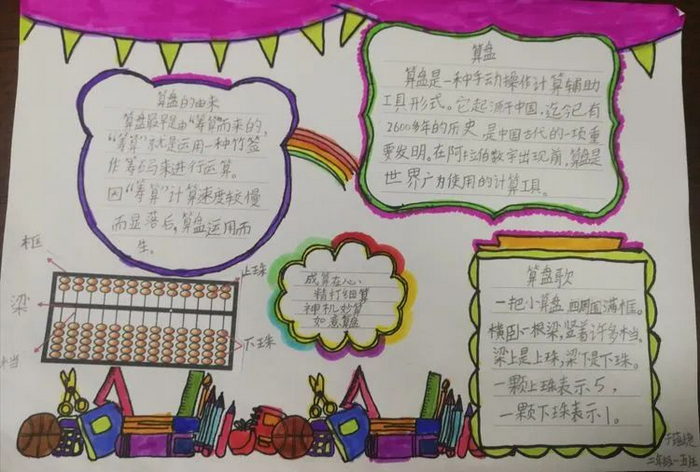 算盘的由来
算盘最早是由“筹算”而来的,
“筹算”就是运用一种竹签
作筹码来进行运算。
因“筹算”计算速度较慢
而显落后,算盘运用而
生。
算盘
算盘是一种手动操作计算辅助
工具形式。它起源于中国,迄今已有
2600多年的历史,是中国古代的一项重
要发明。在阿拉伯数字出现前,算盘是
世界广为使用的计算工具。
框
上珠
梁
下珠
档
成算在心
精打细算
神机妙算
如意算盘
算盘歌
一把小算盘,四周围满框。
横卧一根梁,竖着许多档。
梁上是上珠,梁下是下珠。
一颗上珠表示5,
一颗下珠表示1。
二年级一班